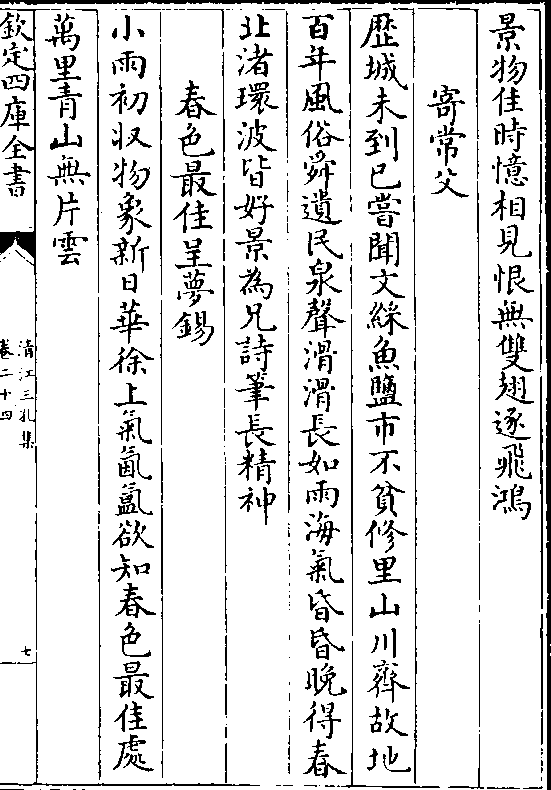 景物佳時憶相見恨無雙翅逐飛鴻
寄常父
歴城未到已嘗聞文綵魚鹽市不貧修里山川齊故地
百年風俗舜遺民泉聲滑滑長如雨海氣昏昏晚得春
北渚環波皆好景為兄詩筆長精神
春色最佳呈夢錫
小雨初収物象新日華徐上氣氤氲欲知春色最佳處
萬里青山無片雲
欽定四庫全書
清江三孔集
卷二十四
七